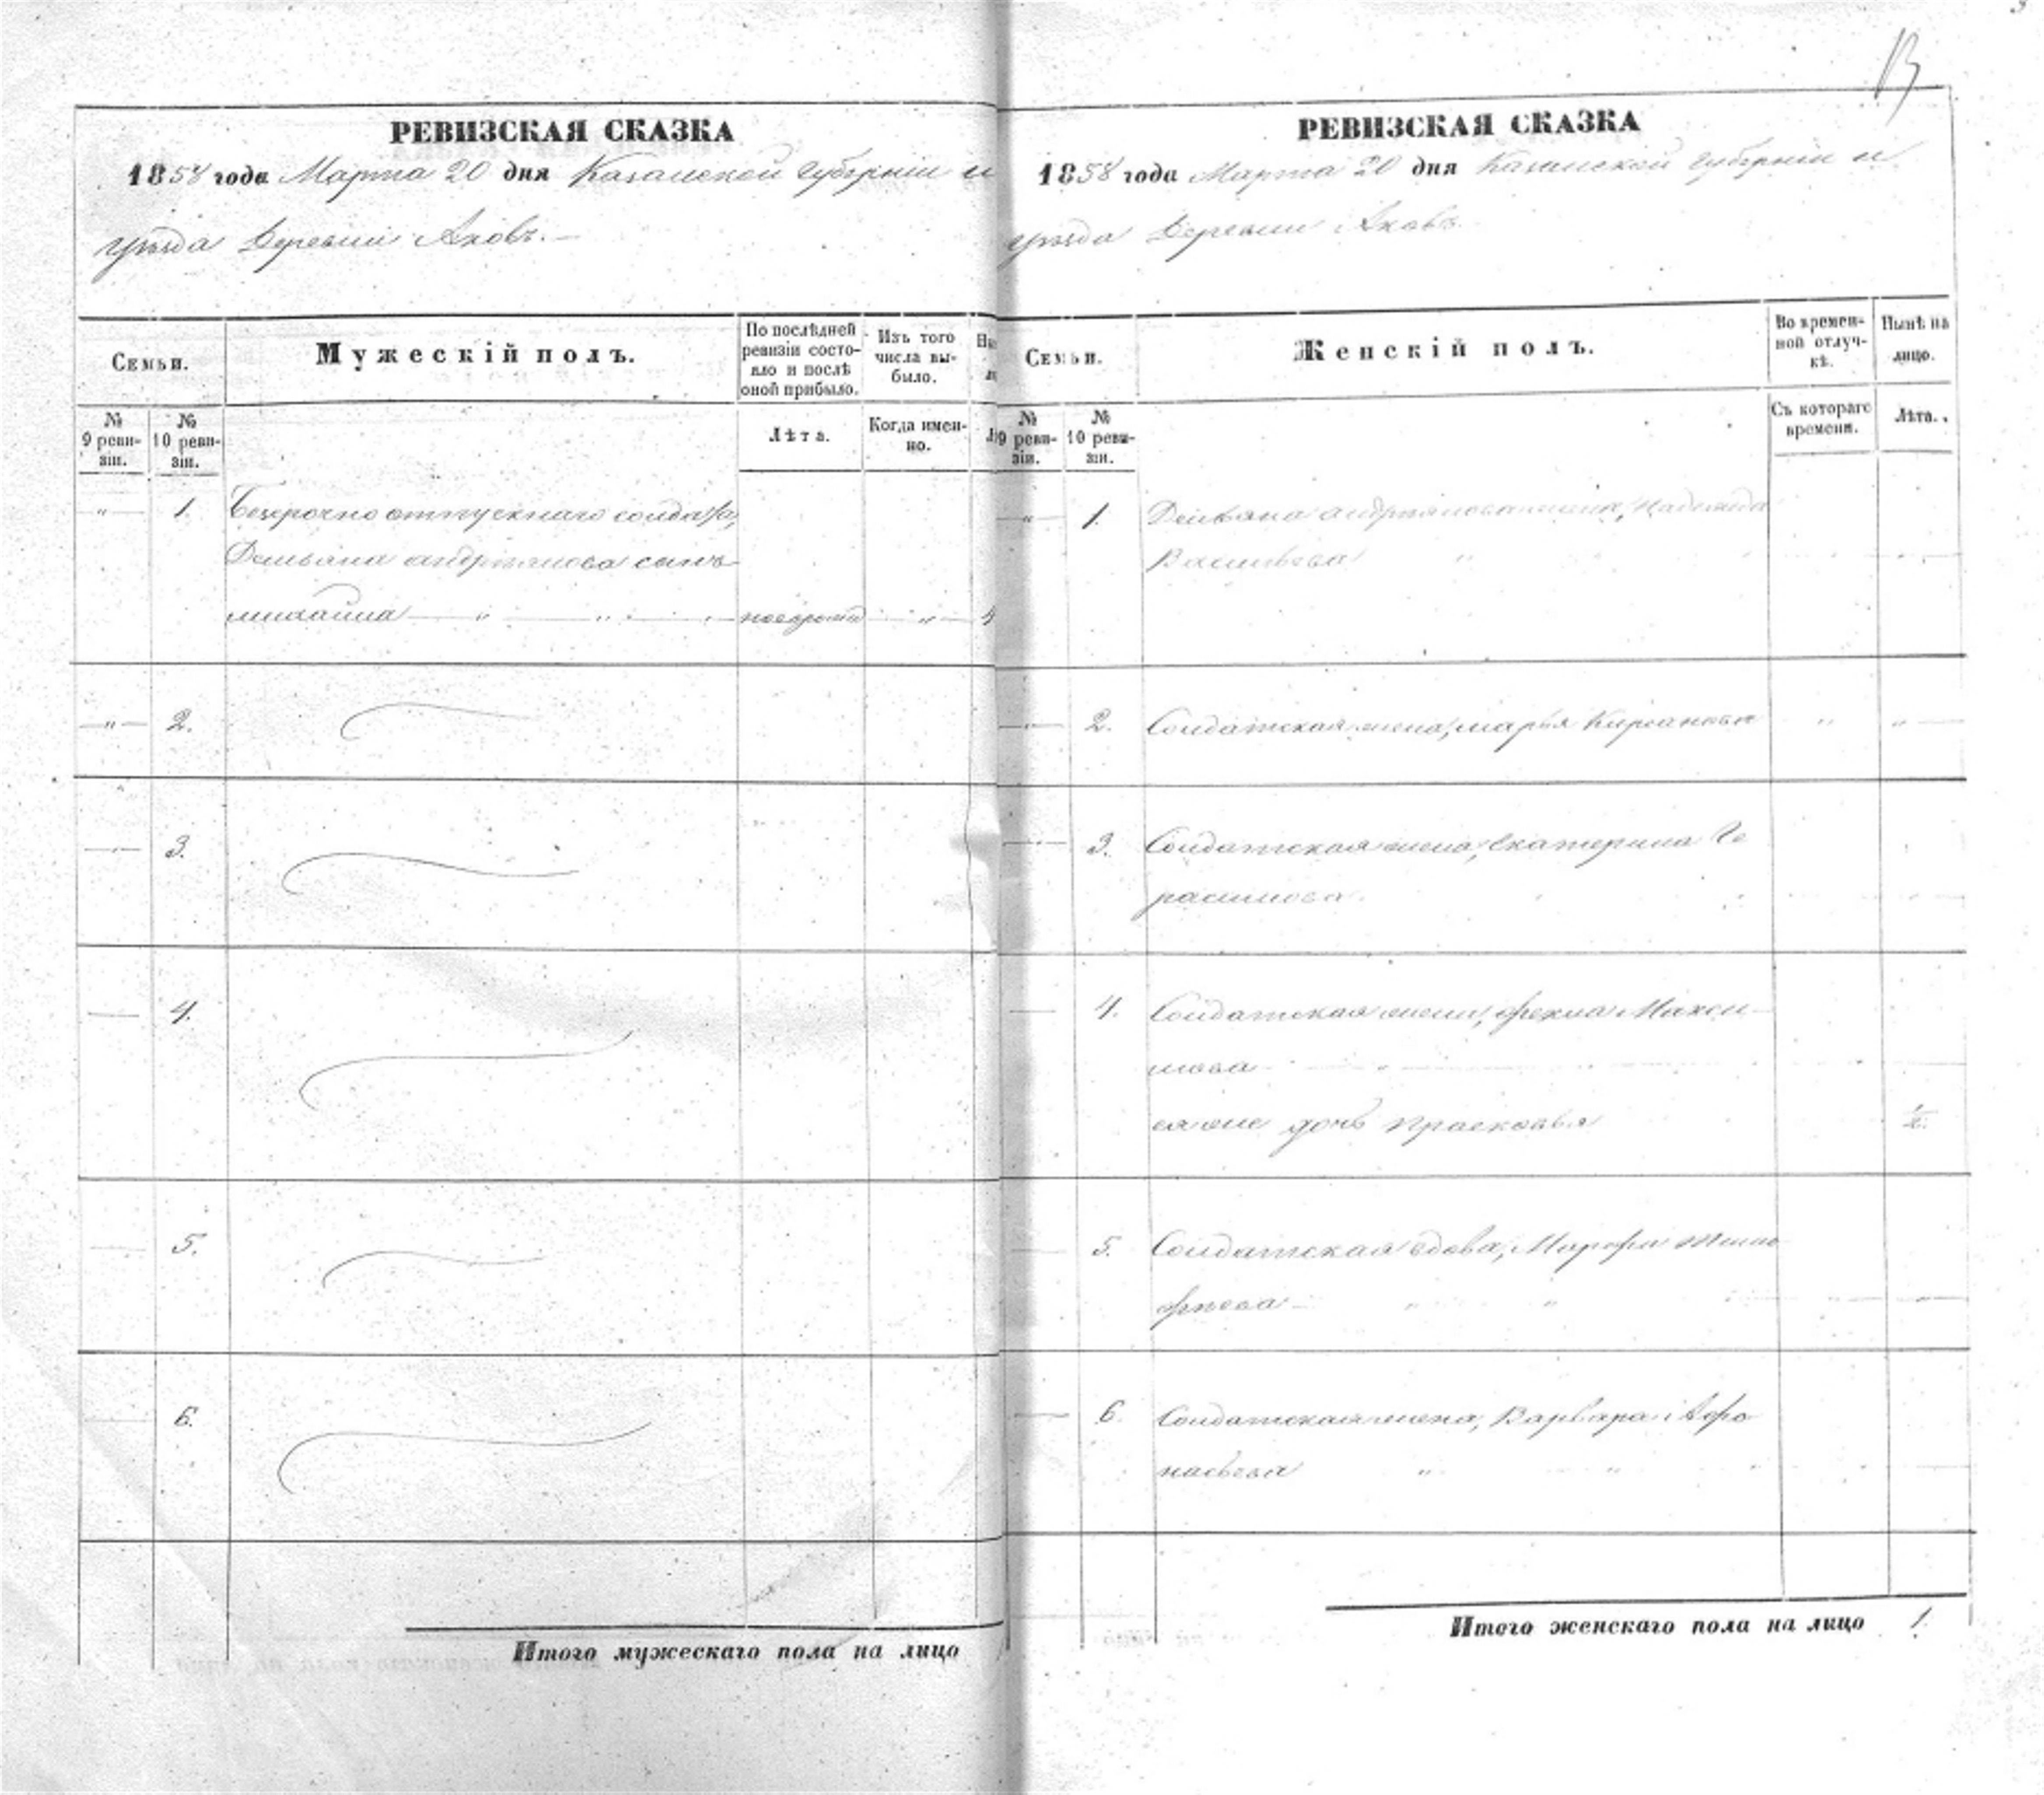 РЕВИЗСКАЯ СКАЗКА
1858 года Марта 20 дня Казанской губерніи и
уѣзда Деревни Аковъ.
Семьи.
Мужескій полъ.
По послѣдней ревизіи состояло и послѣ оной прибыло.
Изъ того числа выбыло.
№ 9 ревизіи.
№ 10 ревизіи.
Лѣта.
Когда именно.
1. Безсрочно отпускнаго солдата,
Демьяна андрианова сынъ
михайла
2.
3.
4.
5.
6.
Итого мужескаго пола на лицо
РЕВИЗСКАЯ СКАЗКА
1858 года Марта 20 дня Казанской губерніи и
уѣзда Деревни Аковъ.
Семьи.
Женскій полъ.
Во временной отлучкѣ.
Нынѣ на лицо.
№ 9 ревизіи.
№ 10 ревизіи.
Съ котораго времени.
Лѣта.
1. Демьяна андрианова жена, Надежда
Васильева
2. Солдатская жена, марья Кирсанова
3. Солдатская жена, Екатерина Ге
расимова
4. Солдатская жена, фекла Макси
мова
ея же дочь Прасковья 1/2
5. Солдатская вдова, Марфа Тимо
фѣева
6. Солдатская жена, Варвара Афо
насьева
Итого женскаго пола на лицо 1.